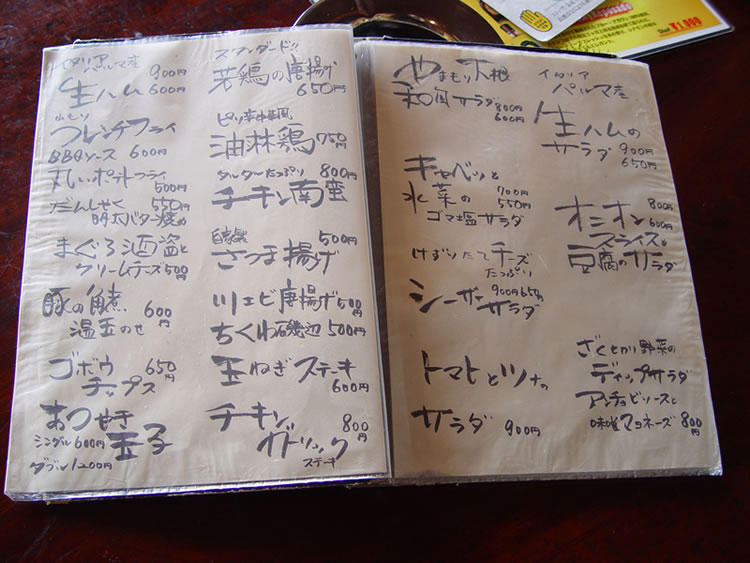 パルマ産
生ハム 900円 600円
山もり
フレンチフライ
BBQソース 600円
丸いポテトフライ
500円
だんしゃく 550円
明太バター焼め
まぐろ酒盗と
クリームチーズ500円
豚の角煮 600円
温玉のせ
ゴボウ 650円
チップス
あつせき
玉子
シングル600円
ダブル1200円
スタンダード!!
若鶏の唐揚げ
650円
ピリ辛中華風
油淋鶏 750円
タルタルたっぷり 800円
チキン南蛮
自家製 500円
さつま揚げ
川エビ唐揚げ500円
ちくわ磯辺 500円
玉ねぎステーキ
600円
チキン 800円
ガーリック
ステーキ
やまもり大根
和風サラダ 800円 600円
キャベツと
水菜の 700円 550円
ゴマ塩サラダ
けずりたてチーズ
たっぷり
シーザー 900円 650円
サラダ
トマトとツナの
サラダ 900円
イタリア
パルマ産
生ハムの
サラダ 900円 650円
オニオン 800円 600円
スライスと
豆腐のサラダ
ざくぎり野菜の
ディップサラダ
アンチョビソースと
味噌マヨネーズ 800円
¥1,999